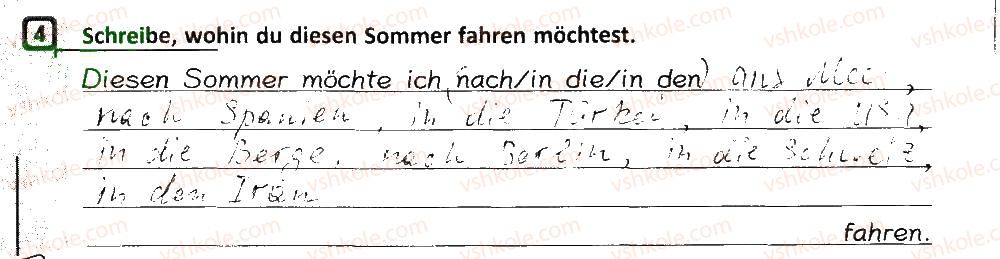 4 Schreibe, wohin du diesen Sommer fahren möchtest.
Diesen Sommer möchte ich (nach/in die/in den) ans Mee ,
nach Spanien, in die Türkei, in die US ,
in die Berge, nach Berlin, in die Schweiz,
in den Iran
fahren.